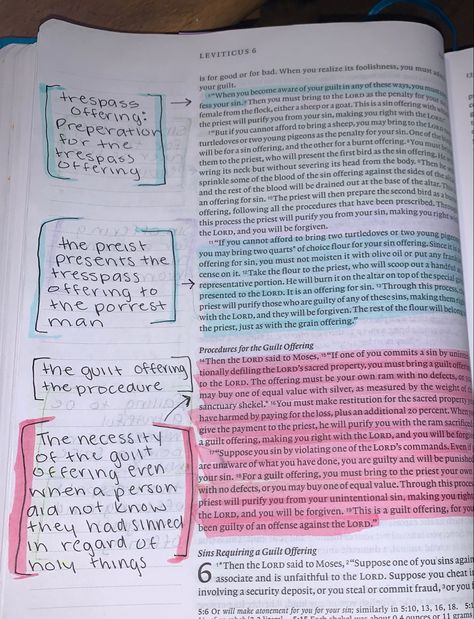 LEVITICUS 6
trespass
offering:
Preperation
for the
trespass
offering
the preist
presents the
tresspass
offering to
the porrest
man
the guilt offering
the procedure
The necessity
of the guilt
offering even
when a person
did not know
they had sinned
in regard of
holy things
is for good or for bad. When you realize its foolishness, you must
your guilt.
"When you become aware of your guilt in any of these ways, you must
fess your sin. Then you must bring to the LORD as the penalty for your
female from the flock, either a sheep or a goat. This is a sin offering with
the priest will purify you from your sin, making you right with the LORD.
"But if you cannot afford to bring a sheep, you may bring to the LORD
turtledoves or two young pigeons as the penalty for your sin. One of
will be for a sin offering, and the other for a burnt offering. You must
them to the priest, who will present the first bird as the sin offering. He
wring its neck but without severing its head from the body. Then he
sprinkle some of the blood of the sin offering against the sides of the
and the rest of the blood will be drained out at the base of the altar. This
an offering for sin. The priest will then prepare the second bird as a
offering, following all the procedures that have been prescribed. Through
this process the priest will purify you from your sin, making you right
the LORD, and you will be forgiven.
"If you cannot afford to bring two turtledoves or two young
you may bring two quarts* of choice flour for your sin offering. Since it is an
offering for sin, you must not moisten it with olive oil or put any
cense on it. 12 Take the flour to the priest, who will scoop out a handful
representative portion. He will burn it on the altar on top of the special
presented to the LORD. It is an offering for sin. 13 Through this process,
priest will purify those who are guilty of any of these sins, making them right
with the LORD, and they will be forgiven. The rest of the flour will belong
the priest, just as with the grain offering."
Procedures for the Guilt Offering
14 Then the LORD said to Moses, 15 "If one of you commits a sin by
tionally defiling the LORD's sacred property, you must bring a guilt
to the LORD. The offering must be your own ram with no defects, or
may buy one of equal value with silver, as measured by the weight of
sanctuary shekel.* 16 You must make restitution for the sacred property
have harmed by paying for the loss, plus an additional 20 percent. When
give the payment to the priest, he will purify you with the ram sacrificed
a guilt offering, making you right with the LORD, and you will be
17 "Suppose you sin by violating one of the LORD's commands. Even if
are unaware of what you have done, you are guilty and will be punished
your sin. 18 For a guilt offering, you must bring to the priest your own
with no defects, or you may buy one of equal value. Through this process
priest will purify you from your unintentional sin, making you right
the LORD, and you will be forgiven. 19 This is a guilt offering, for you
been guilty of an offense against the LORD."
Sins Requiring a Guilt Offering
6 1*Then the LORD said to Moses, 2 "Suppose one of you sins
associate and is unfaithful to the LORD. Suppose you cheat in
involving a security deposit, or you steal or commit fraud, 3 or you
5:6 Or will make atonement for you for your sin; similarly in 5:10, 13, 16, 18.